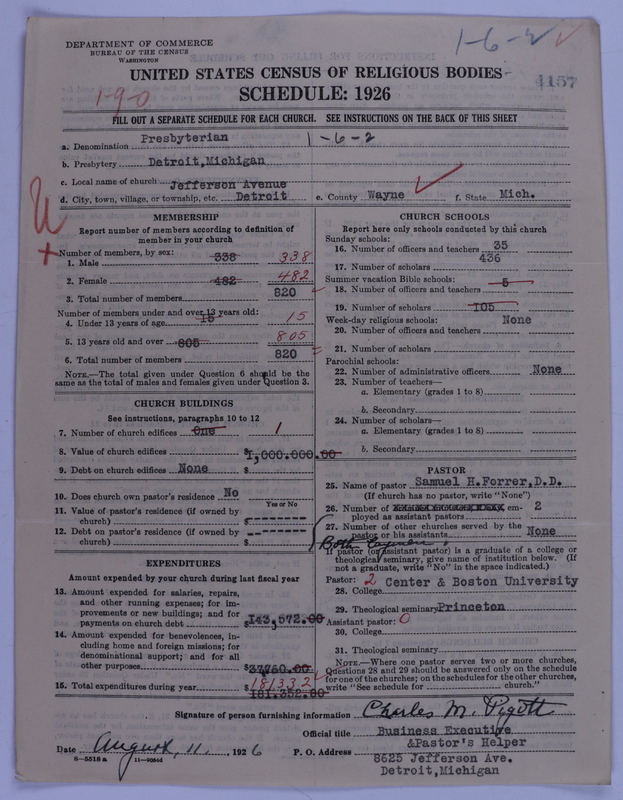 DEPARTMENT OF COMMERCE
BUREAU OF THE CENSUS
WASHINGTON
1-6-2
UNITED STATES CENSUS OF RELIGIOUS BODIES
4157
1-9-0
SCHEDULE: 1926
FILL OUT A SEPARATE SCHEDULE FOR EACH CHURCH. SEE INSTRUCTIONS ON THE BACK OF THIS SHEET
a. Denomination Presbyterian 1-6-2
b. Presbytery Detroit,Michigan
c. Local name of church Jefferson Avenue
d. City, town, village, or township, etc. Detroit e. County Wayne f. State Mich.
MEMBERSHIP
Report number of members according to definition of
member in your church
Number of members, by sex:
1. Male 338 338
2. Female 482 482
3. Total number of members 820
Number of members under and over 13 years old:
4. Under 13 years of age 15 15
5. 13 years old and over 805 805
6. Total number of members 820
NOTE.—The total given under Question 6 should be the
same as the total of males and females given under Question 3.
CHURCH BUILDINGS
See instructions, paragraphs 10 to 12
7. Number of church edifices One 1
8. Value of church edifices $1,000.000.00
9. Debt on church edifices None $
10. Does church own pastor's residence No
Yes or No
11. Value of pastor's residence (if owned by
church) $--------
12. Debt on pastor's residence (if owned by
church) $--------
EXPENDITURES
Amount expended by your church during last fiscal year
13. Amount expended for salaries, repairs,
and other running expenses; for im-
provements or new buildings; and for
payments on church debt $143,572.00
14. Amount expended for benevolences, in-
cluding home and foreign missions; for
denominational support; and for all
other purposes $37760.00
15. Total expenditures during year $181332
181.352.00
CHURCH SCHOOLS
Report here only schools conducted by this church
Sunday schools:
16. Number of officers and teachers 35
17. Number of scholars 436
Summer vacation Bible schools:
18. Number of officers and teachers 5
19. Number of scholars 105
Week-day religious schools: None
20. Number of officers and teachers
21. Number of scholars
Parochial schools:
22. Number of administrative officers None
23. Number of teachers—
a. Elementary (grades 1 to 8)
b. Secondary
24. Number of scholars—
a. Elementary (grades 1 to 8)
b. Secondary
PASTOR
25. Name of pastor Samuel H.Forrer,D.D.
(If church has no pastor, write "None")
26. Number of em- 2
ployed as assistant pastors
27. Number of other churches served by the
pastor or his assistants None
If pastor (or assistant pastor) is a graduate of a college or
theological seminary, give name of institution below. (If
not a graduate, write "No" in the space indicated.)
Pastor: 2 Center & Boston University
28. College
29. Theological seminary Princeton
Assistant pastor: 0
30. College
31. Theological seminary
NOTE.—Where one pastor serves two or more churches,
Questions 28 and 29 should be answered only on the schedule
for one of the churches; on the schedules for the other churches,
write "See schedule for church."
Signature of person furnishing information Charles M. Pigott
Official title Business Executive
&Pastor's Helper
Date August, 11, 1926 P. O. Address 8625 Jefferson Ave.
Detroit,Michigan
8—5518 a